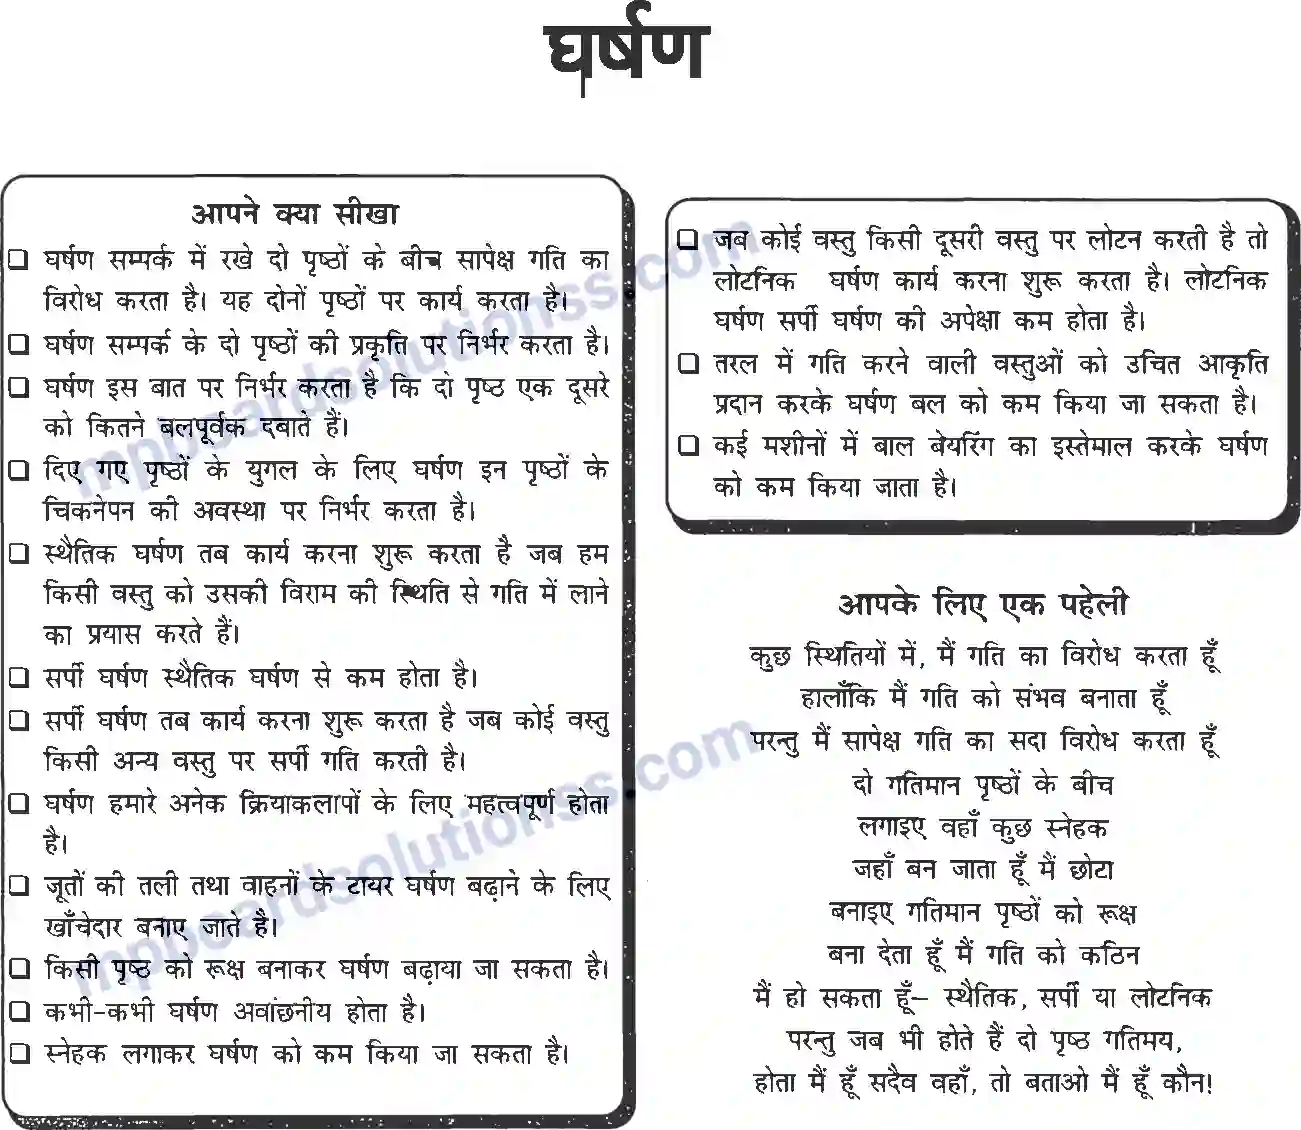 घर्षण
आपने क्या सीखा
❑ घर्षण सम्पर्क में रखे दो पृष्ठों के बीच सापेक्ष गति का
विरोध करता है। यह दोनों पृष्ठों पर कार्य करता है।
❑ घर्षण सम्पर्क के दो पृष्ठों की प्रकृति पर निर्भर करता है।
❑ घर्षण इस बात पर निर्भर करता है कि दो पृष्ठ एक दूसरे
को कितने बलपूर्वक दबाते हैं।
❑ दिए गए पृष्ठों के युगल के लिए घर्षण इन पृष्ठों के
चिकनेपन की अवस्था पर निर्भर करता है।
❑ स्थैतिक घर्षण तब कार्य करना शुरू करता है जब हम
किसी वस्तु को उसकी विराम की स्थिति से गति में लाने
का प्रयास करते हैं।
❑ सर्पी घर्षण स्थैतिक घर्षण से कम होता है।
❑ सर्पी घर्षण तब कार्य करना शुरू करता है जब कोई वस्तु
किसी अन्य वस्तु पर सर्पी गति करती है।
❑ घर्षण हमारे अनेक क्रियाकलापों के लिए महत्वपूर्ण होता
है।
❑ जूतों की तली तथा वाहनों के टायर घर्षण बढ़ाने के लिए
खाँचेदार बनाए जाते है।
❑ किसी पृष्ठ को रूक्ष बनाकर घर्षण बढ़ाया जा सकता है।
❑ कभी-कभी घर्षण अवांछनीय होता है।
❑ स्नेहक लगाकर घर्षण को कम किया जा सकता है।
❑ जब कोई वस्तु किसी दूसरी वस्तु पर लोटन करती है तो
लोटनिक घर्षण कार्य करना शुरू करता है। लोटनिक
घर्षण सर्पी घर्षण की अपेक्षा कम होता है।
❑ तरल में गति करने वाली वस्तुओं को उचित आकृति
प्रदान करके घर्षण बल को कम किया जा सकता है।
❑ कई मशीनों में बाल बेयरिंग का इस्तेमाल करके घर्षण
को कम किया जाता है।
आपके लिए एक पहेली
कुछ स्थितियों में, मैं गति का विरोध करता हूँ
हालाँकि मैं गति को संभव बनाता हूँ
परन्तु मैं सापेक्ष गति का सदा विरोध करता हूँ
दो गतिमान पृष्ठों के बीच
लगाइए वहाँ कुछ स्नेहक
जहाँ बन जाता हूँ मैं छोटा
बनाइए गतिमान पृष्ठों को रूक्ष
बना देता हूँ मैं गति को कठिन
मैं हो सकता हूँ– स्थैतिक, सर्पी या लोटनिक
परन्तु जब भी होते हैं दो पृष्ठ गतिमय,
होता मैं हूँ सदैव वहाँ, तो बताओ मैं हूँ कौन!
mpboardsolutionss.com
mpboardsolutionss.com